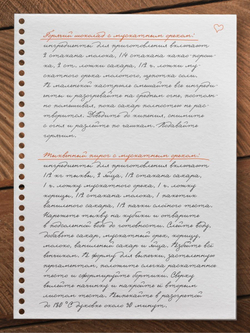 Горячий шоколад с мускатным орехом:
ингредиенты для приготовления включают
2 стакана молока, 1/4 стакана какао-порош-
ка, 2 ст. ложки сахара, 1/2 ч. ложки му-
скатного ореха молотого, щепотка соли.
В маленькой кастрюле смешайте все ингреди-
енты и разогревайте на среднем огне, постоян-
но помешивая, пока сахар полностью не рас-
творится. Доведите до кипения, снимите
с огня и разлейте по чашкам. Подавайте
горячим.
Тыквенный пирог с мускатным орехом:
ингредиенты для приготовления включают
1/2 кг. тыквы, 2 яйца, 1/2 стакана сахара,
1 ч. ложку мускатного ореха, 1 ч. ложку
корицы, 1/2 стакана молока, 1 пакетик
ванильного сахара, 1/2 пачки слоёного теста.
Нарежьте тыкву на кубики и отварите
в подсоленной воде до готовности. Слейте воду,
добавьте сахар, мускатный орех, корицу,
молоко, ванильный сахар и яйца. Взбейте всё
венчиком. В форму для выпечки, застеленную
пергаментом, положите слоёное раскатанное
тесто и сформируйте бортики. Сверху
вылейте начинку и накройте её вторым
листом теста. Выпекайте в разогретой
до 180 °C духовке около 40 минут.